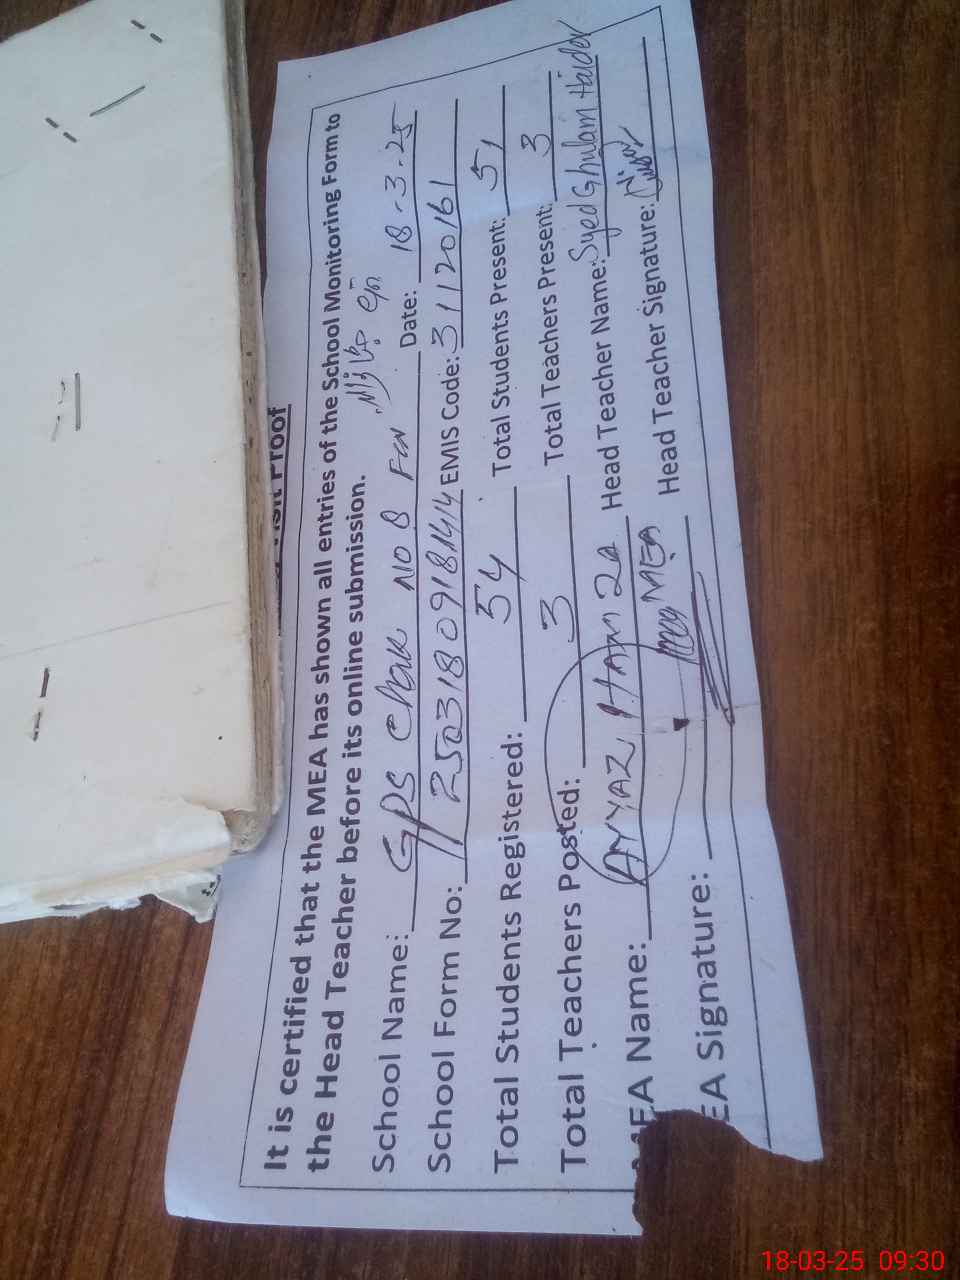 Visit Proof
It is certified that the MEA has shown all entries of the School Monitoring Form to
the Head Teacher before its online submission.
School Name: GPS Chak NO 8 FW Date: 18-3-25
School Form No: 25031809181414 EMIS Code: 31120161
Total Students Registered: 54 Total Students Present: 51
Total Teachers Posted: 3 Total Teachers Present: 3
MEA Name: AYYAZ HAMZA Head Teacher Name: Syed Ghulam Haider
EA Signature: MEA Head Teacher Signature:
18-03-25 09:30